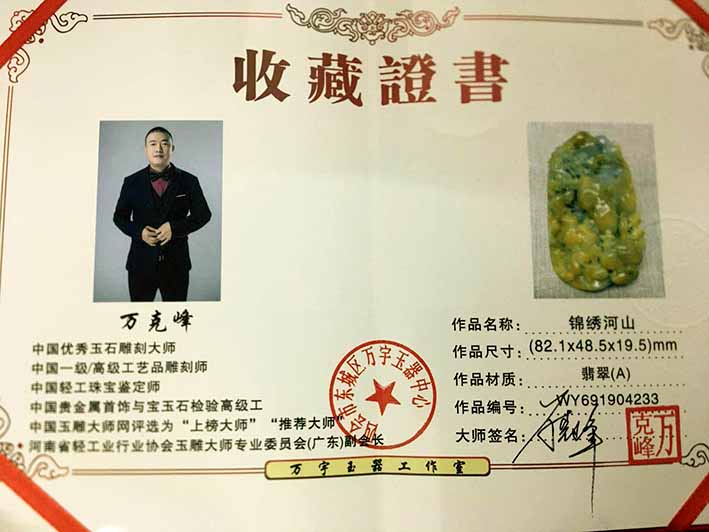 收藏證書
万克峰
中国优秀玉石雕刻大师
中国一级/高级工艺品雕刻师
中国轻工珠宝鉴定师
中国贵金属首饰与宝玉石检验高级工
中国玉雕大师网评选为“上榜大师”“推荐大师”
河南省轻工业行业协会玉雕大师专业委员会(广东)副会长
作品名称: 锦绣河山
作品尺寸: (82.1x48.5x19.5)mm
作品材质: 翡翠(A)
作品编号: WY691904233
大师签名:
万克峰
四会市东城区万宇玉器中心
万宇玉器工作室